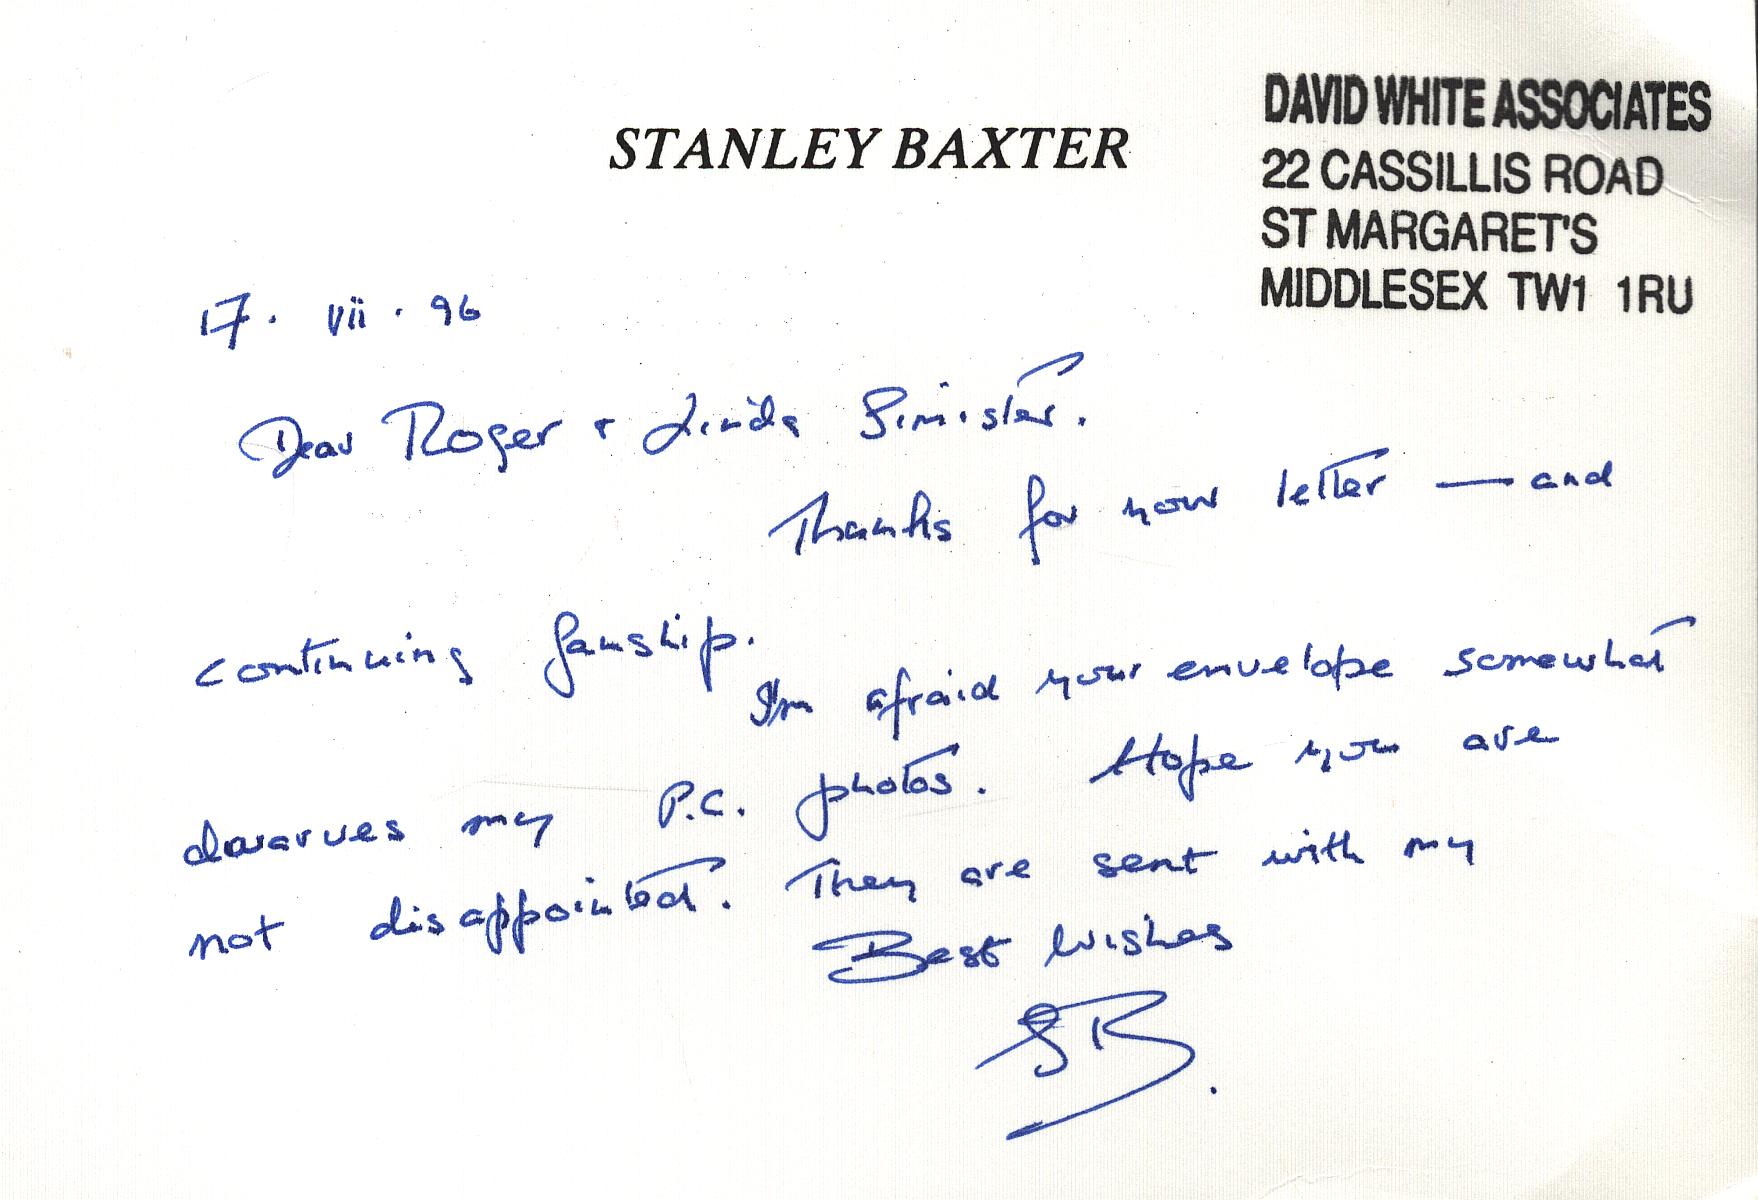 STANLEY BAXTER
DAVID WHITE ASSOCIATES
22 CASSILLIS ROAD
ST MARGARET'S
MIDDLESEX TW1 1RU
17. vii. 96
Dear Roger + Linda Simister.
Thanks for your letter — and
continuing fanship.
I'm afraid your envelope somewhat
dwarves my P.C. photos. Hope you are
not disappointed. They are sent with my
Best Wishes
SB.